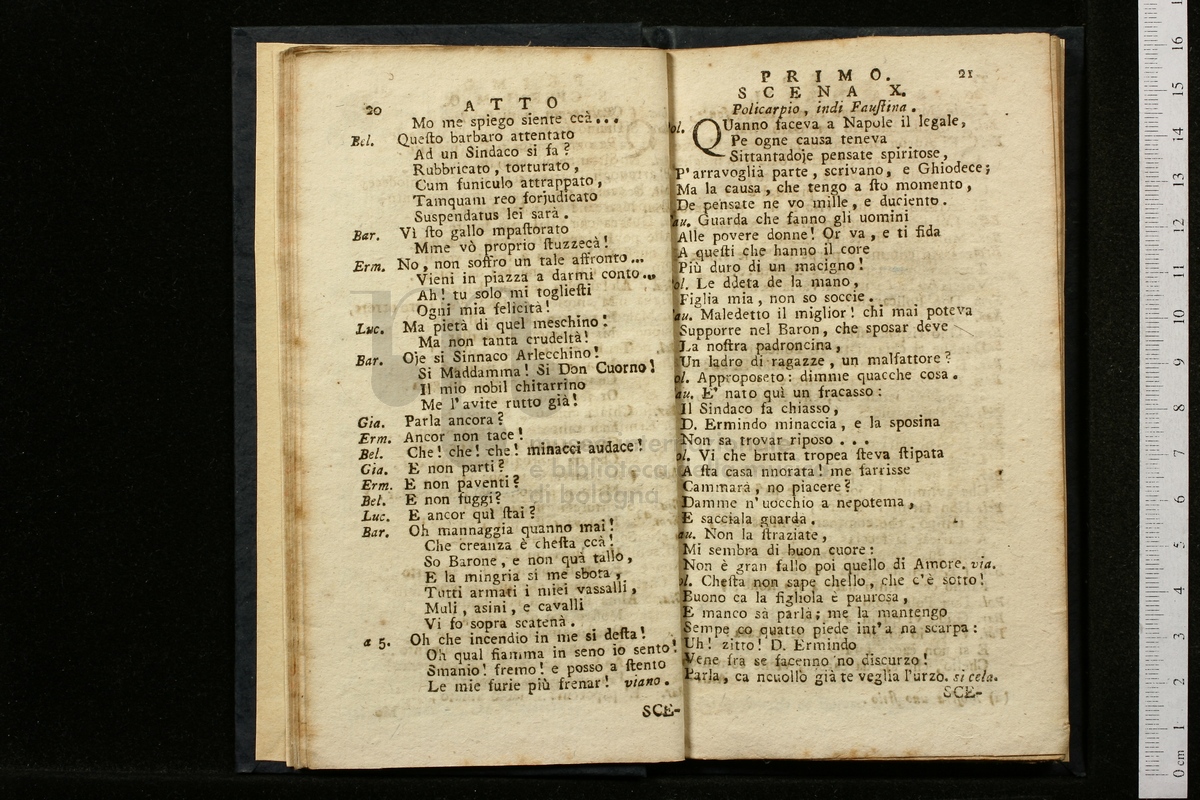 20
ATTO
Mo me spiego siente ccà...
Bel. Queſto barbaro attentato
Ad un Sindaco si fa?
Rubbricato, torturato,
Cum funiculo attrappato,
Tamquam reo forjudicato
Suspendatus lei sarà.
Bar. Vì ſto gallo mpaſtorato
Mme vò proprio ſtuzzecà!
Erm. No, non soffro un tale affronto...
Vieni in piazza a darmi conto...
Ah! tu solo mi toglieſti
Ogni mia felicità!
Luc. Ma pietà di quel meschino!
Ma non tanta crudeltà!
Bar. Oje si Sinnaco Arlecchino!
Si Maddamma! Si Don Cuorno!
Il mio nobil chitarrino
Me l'avite rutto già!
Gia. Parla ancora?
Erm. Ancor non tace!
Bel. Che! che! che! minacci audace!
Gia. E non parti?
Erm. E non paventi?
Bel. E non fuggi?
Luc. E ancor quì ſtai?
Bar. Oh mannaggia quanno mai!
Che creanza è cheſta ccà!
So Barone, e non quà tallo,
E la mingria si me sbota,
Tutti armati i miei vassalli,
Muli, asini, e cavalli
Vi fo sopra scatenà.
a 5. Oh che incendio in me si deſta!
Oh qual fiamma in seno io sento!
Smanio! fremo! e posso a ſtento
Le mie furie più frenar! viano.
SCE-
PRIMO.
21
SCENA X.
Policarpio, indi Fauſtina.
ol. QUanno faceva a Napole il legale,
Pe ogne causa teneva
Sittantadoje pensate spiritose,
P'arravoglià parte, scrivano, e Ghiodece;
Ma la causa, che tengo a ſto momento,
De pensate ne vo mille, e duciento.
au. Guarda che fanno gli uomini
Alle povere donne! Or va, e ti fida
A queſti che hanno il core
Più duro di un macigno!
ol. Le ddeta de la mano,
Figlia mia, non so soccie.
au. Maledetto il miglior! chi mai poteva
Supporre nel Baron, che sposar deve
La noſtra padroncina,
Un ladro di ragazze, un malfattore?
ol. Approposeto: dimme quacche cosa.
au. E' nato quì un fracasso:
Il Sindaco fa chiasso,
D. Ermindo minaccia, e la sposina
Non sa trovar riposo...
ol. Vi che brutta tropea ſteva ſtipata
A ſta casa nnorata! me farrisse
Cammarà, no piacere?
Damme n'uocchio a nepotema,
E sacciala guarda.
au. Non la ſtraziate,
Mi sembra di buon cuore:
Non è gran fallo poi quello di Amore. via.
ol. Cheſta non sape chello, che c'è sotto!
Buono ca la figliola è paurosa,
E manco sà parlà; me la mantengo
Sempe co quatto piede int'a na scarpa:
Uh! zitto! D. Ermindo
Vene fra se facenno no discurzo!
Parla, ca ncuollo già te veglia l'urzo. si cela.
SCE-